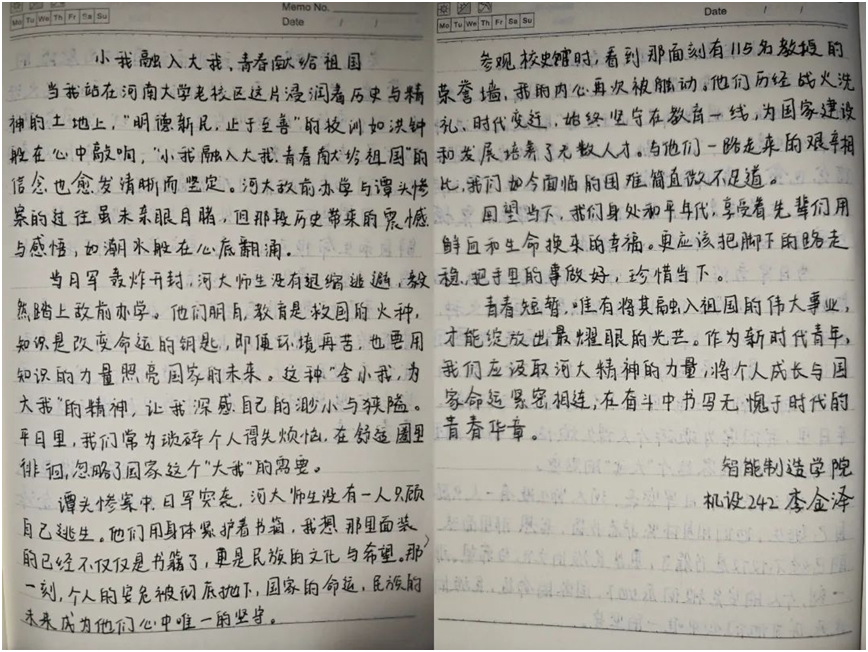 Memo No.
Mo Tu We Th Fr Sa Su
Date / /
小我融入大我,青春献给祖国
当我站在河南大学老校区这片浸润着历史与精
神的土地上,“明德新民,止于至善”的校训如洪钟
般在心中敲响,“小我融入大我,青春献给祖国”的
信念也愈发清晰而坚定。河大敌前办学与潭头惨
案的过往虽未亲眼目睹,但那段历史带来的震憾
与感悟,如潮水般在心底翻涌。
当日军轰炸开封,河大师生没有退缩逃避,毅
然踏上敌前办学。他们明白,教育是救国的火种,
知识是改变命运的钥匙,即便环境再苦,也要用
知识的力量照亮国家的未来。这种“舍小我,为
大我”的精神,让我深感自己的渺小与狭隘。
平日里,我们常为琐碎个人得失烦恼,在舒适圈里
徘徊,忽略了国家这个“大我”的需要。
潭头惨案中,日军突袭,河大师生没有一人只顾
自己逃生。他们用身体紧护着书箱,我想那里面装
的已经不仅仅是书籍了,更是民族的文化与希望。那
一刻,个人的安危被彻底抛下,国家的命运,民族的
未来成为他们心中唯一的坚守。
Mo Tu We Th Fr Sa Su
Date / /
参观校史馆时,看到那面刻有115名教授的
荣誉墙,我的内心再次被触动。他们历经战火洗
礼,时代变迁,始终坚守在教育一线,为国家建设
和发展培养了无数人才。与他们一路走来的艰辛相
比,我们如今面临的困难简直微不足道。
回望当下,我们身处和平年代,享受着先辈们用
鲜血和生命换来的幸福。更应该把脚下的路走
稳,把手里的事做好,珍惜当下。
青春短暂,唯有将其融入祖国的伟大事业,
才能绽放出最耀眼的光芒。作为新时代青年,
我们应汲取河大精神的力量,将个人成长与国
家命运紧密相连,在奋斗中书写无愧于时代的
青春华章。
智能制造学院
机设242 李金泽